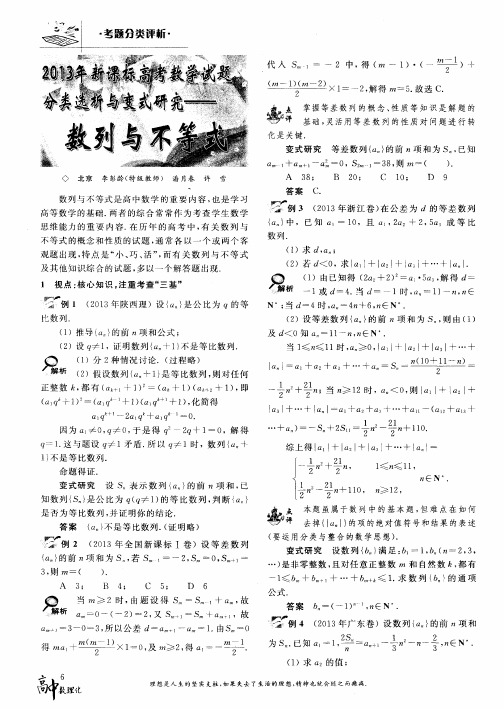 ·考题分类评析·
2013年新课标高考数学试题
分类选析与变式研究——
数列与不等式
◇ 北京 李彭龄(特级教师) 潘月春 许 雪
数列与不等式是高中数学的重要内容,也是学习
高等数学的基础.两者的综合常常作为考查学生数学
思维能力的重要内容.在历年的高考中,有关数列与
不等式的概念和性质的试题,通常各以一个或两个客
观题出现,特点是“小、巧、活”,而有关数列与不等式
及其他知识综合的试题,多以一个解答题出现.
1 视点:核心知识,注重考查“三基”
例1 (2013年陕西理)设{aₙ}是公比为q的等
比数列.
(1)推导{aₙ}的前n项和公式;
(2)设q≠1,证明数列{aₙ+1}不是等比数列.
解析 (1)分2种情况讨论.(过程略)
(2)假设数列{aₙ+1}是等比数列,则对任何
正整数k,都有(aₖ₊₁+1)²=(aₖ+1)(aₖ₊₂+1),即
(a₁qᵏ+1)²=(a₁qᵏ⁻¹+1)(a₁qᵏ⁺¹+1),化简得
a₁qᵏ⁺¹-2a₁qᵏ+a₁qᵏ⁻¹=0.
因为a₁≠0,q≠0,于是得q²-2q+1=0,解得
q=1.这与题设q≠1矛盾.所以q≠1时,数列{aₙ+
1}不是等比数列.
命题得证.
变式研究 设Sₙ表示数列{aₙ}的前n项和,已
知数列{Sₙ}是公比为q(q≠1)的等比数列,判断{aₙ}
是否为等比数列,并证明你的结论.
答案 {aₙ}不是等比数列.(证明略)
例2 (2013年全国新课标Ⅰ卷)设等差数列
{aₙ}的前n项和为Sₙ,若Sₘ₋₁=-2,Sₘ=0,Sₘ₊₁=
3,则m=( ).
A 3; B 4; C 5; D 6
解析 当m≥2时,由题设得Sₘ=Sₘ₋₁+aₘ,故
aₘ=0-(-2)=2,又Sₘ₊₁=Sₘ+aₘ₊₁,故
aₘ₊₁=3-0=3,所以公差d=aₘ₊₁-aₘ=1.由Sₘ=0
得ma₁+m(m-1)/2×1=0,及m≥2,得a₁=-(m-1)/2.
代入Sₘ₋₁=-2中,得(m-1)·(-(m-1)/2)+
(m-1)(m-2)/2×1=-2,解得m=5.故选C.
点评 掌握等差数列的概念、性质等知识是解题的
基础,灵活用等差数列的性质对问题进行转
化是关键.
变式研究 等差数列{aₙ}的前n项和为Sₙ,已知
aₘ₋₁+aₘ₊₁-aₘ²=0,S₂ₘ₋₁=38,则m=( ).
A 38; B 20; C 10; D 9
答案 C.
例3 (2013年浙江卷)在公差为d的等差数列
{aₙ}中,已知a₁=10,且a₁,2a₂+2,5a₃成等比
数列.
(1)求d,aₙ;
(2)若d<0,求|a₁|+|a₂|+|a₃|+…+|aₙ|.
解析 (1)由已知得(2a₂+2)²=a₁·5a₃,解得d=
-1或d=4.当d=-1时,aₙ=11-n,n∈
N*;当d=4时,aₙ=4n+6,n∈N*.
(2)设等差数列{aₙ}的前n项和为Sₙ,则由(1)
及d<0知aₙ=11-n,n∈N*.
当1≤n≤11时,aₙ≥0,|a₁|+|a₂|+|a₃|+…+
|aₙ|=a₁+a₂+a₃+…+aₙ=Sₙ=n(10+11-n)/2=
-1/2n²+21/2n;当n≥12时,aₙ<0,则|a₁|+|a₂|+
|a₃|+…+|aₙ|=a₁+a₂+a₃+…+a₁₁-(a₁₂+a₁₃+
…+aₙ)=-Sₙ+2S₁₁=1/2n²-21/2n+110.
综上得|a₁|+|a₂|+|a₃|+…+|aₙ|=
{-1/2n²+21/2n, 1≤n≤11,
n∈N*.
1/2n²-21/2n+110, n≥12,
点评 本题虽属于数列中的基本题,但难点在如何
去掉{|aₙ|}的项的绝对值符号和结果的表述
(要运用分类与整合的数学思想).
变式研究 设数列{bₙ}满足:b₁=1,bₙ(n=2,3,
…)是非零整数,且对任意正整数m和自然数k,都有
-1≤bₘ+bₘ₊₁+…+bₘ₊ₖ≤1.求数列{bₙ}的通项
公式.
答案 bₙ=(-1)ⁿ⁻¹,n∈N*.
例4 (2013年广东卷)设数列{aₙ}的前n项和
为Sₙ.已知a₁=1,2Sₙ/n=aₙ₊₁-1/3n²-n-2/3,n∈N*.
(1)求a₂的值;
6
高中数理化
理想是人生的坚实支柱,如果失去了生活的理想,精神也就会随之而瘫痪.